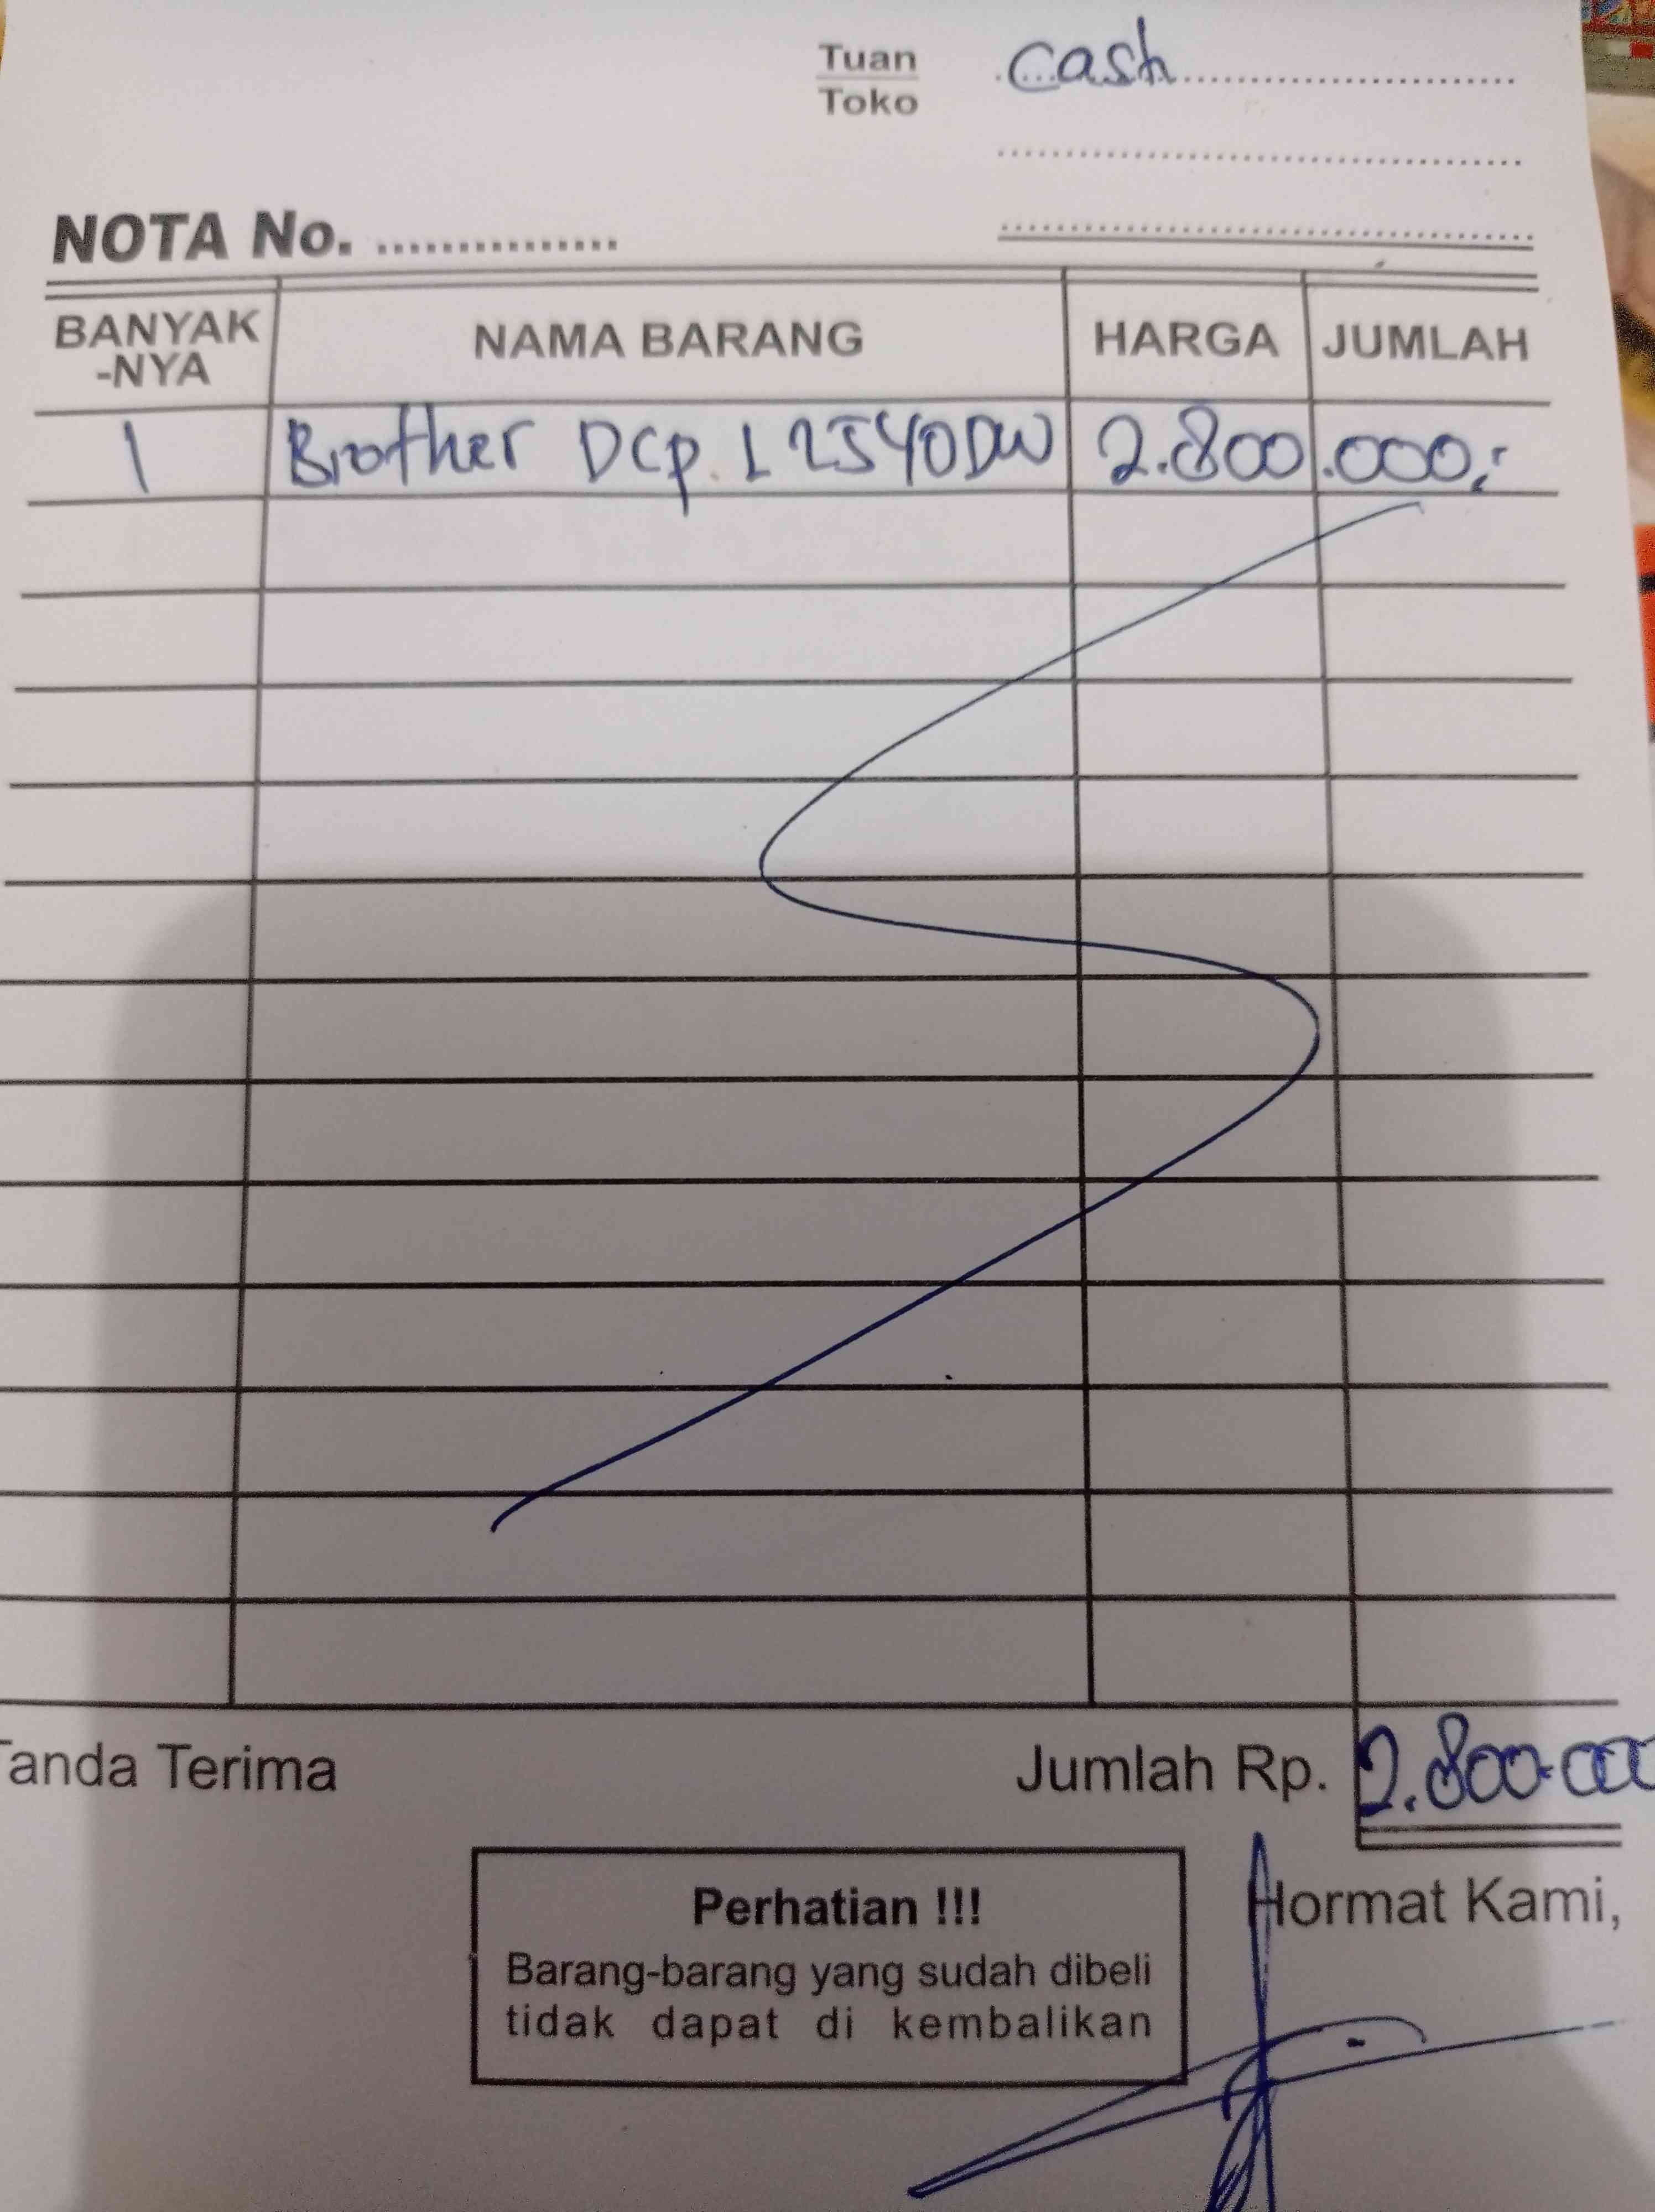 Tuan cash
Toko
NOTA No. ...............
BANYAK -NYA NAMA BARANG HARGA JUMLAH
1 Brother DCP. L2540DW 2.800.000,-
Tanda Terima Jumlah Rp. 2.800.000
Perhatian !!! Hormat Kami,
Barang-barang yang sudah dibeli
tidak dapat di kembalikan